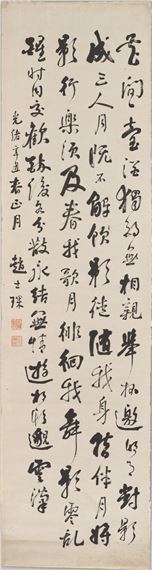 花間一壺酒獨酌無相親舉杯邀明月對影
成三人月既不解飲影徒隨我身暫伴月將
影行樂須及春我歌月徘徊我舞影零亂
醒時同交歡醉後各分散永結無情遊相期邈雲漢
光緒辛丑春正月
趙士琛